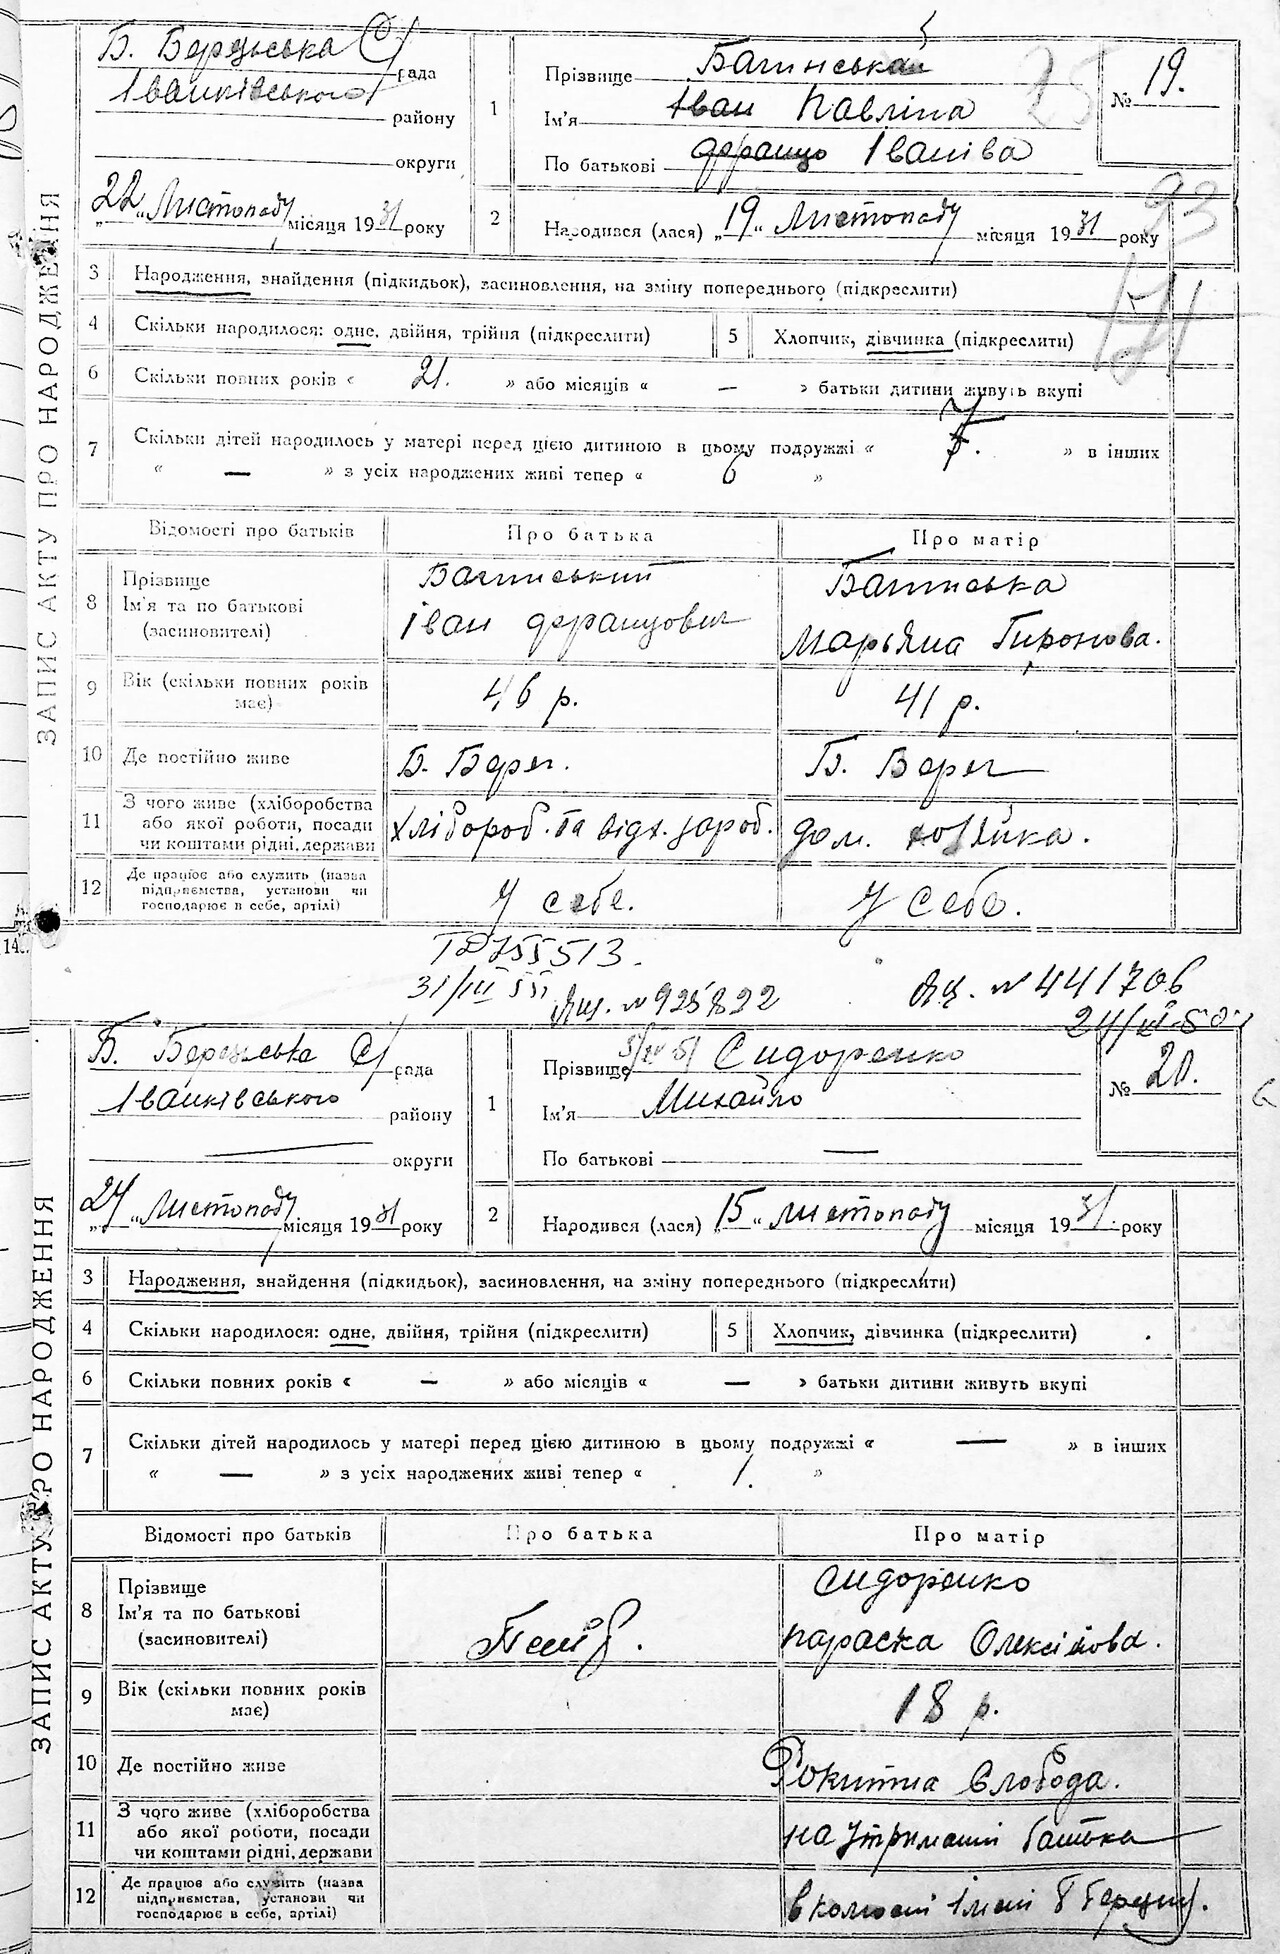 ЗАПИС АКТУ ПРО НАРОДЖЕННЯ
Б. Березьська С/рада
Іванківського району
округи
„22“ Листопаду місяця 1931 року
1
Прізвище Багинська
Ім'я Іван Павліна
По батькові Францо Іванівa
№ 19.
25
93
2
Народився (лася) „19“ Листопаду місяця 1931 року
3 Народження, знайдення (підкидьок), засиновлення, на зміну попереднього (підкреслити)
4 Скільки народилося: одне, двійня, трійня (підкреслити) 5 Хлопчик, дівчинка (підкреслити)
6 Скільки повних років « 21. » або місяців « — » батьки дитини живуть вкупі
7 Скільки дітей народилось у матері перед цією дитиною в цьому подружжі « 7 » в інших
« — » з усіх народжених живі тепер « 6 »
Відомості про батьків Про батька Про матір
8 Прізвище Ім'я та по батькові (засиновителі)
Багинський Іван Францович
Багинська Марьяна Гиронова.
9 Вік (скільки повних років має) 46 р. 41 р.
10 Де постійно живе Б. Берег. Б. Берег
11 З чого живе (хліборобства або якої роботи, посади чи коштами рідні, держави
Хлібороб. та відх. зароб. дом. хозяйка.
12 Де працює або служить (назва підприємства, установи чи господарює в себе, артілі)
У себе. У себе.
755513.
31/III 551
Ящ. № 925822
Ящ. № 441706
5/IV 51
14
ЗАПИС АКТУ ПРО НАРОДЖЕННЯ
Б. Березьська С/рада
Іванківського району
округи
„27“ Листопаду місяця 1931 року
1
Прізвище Сидоренко
Ім'я Михайло
По батькові —
№ 20.
2
Народився (лася) „15“ Листопаду місяця 1931. року
3 Народження, знайдення (підкидьок), засиновлення, на зміну попереднього (підкреслити)
4 Скільки народилося: одне, двійня, трійня (підкреслити) 5 Хлопчик, дівчинка (підкреслити)
6 Скільки повних років « — » або місяців « — » батьки дитини живуть вкупі
7 Скільки дітей народилось у матері перед цією дитиною в цьому подружжі « — » в інших
« — » з усіх народжених живі тепер « 1. »
Відомості про батьків Про батька Про матір
8 Прізвище Ім'я та по батькові (засиновителі)
Сидоренко
Параска Олексійова.
9 Вік (скільки повних років має) 18 р.
10 Де постійно живе Рокитна Слобода.
11 З чого живе (хліборобства або якої роботи, посади чи коштами рідні, держави
на утриманні батька
12 Де працює або служить (назва підприємства, установи чи господарює в себе, артілі)
в імені 8 Березня.